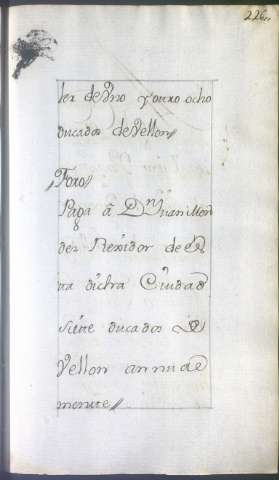 226
ler de Vno y ouxo ocho
ducados de Vellon
Foxo
Paga â Dn Juan Mon
der Rexidor de
ta dicha Ciudad
siete ducados de
Vellon annual
mente